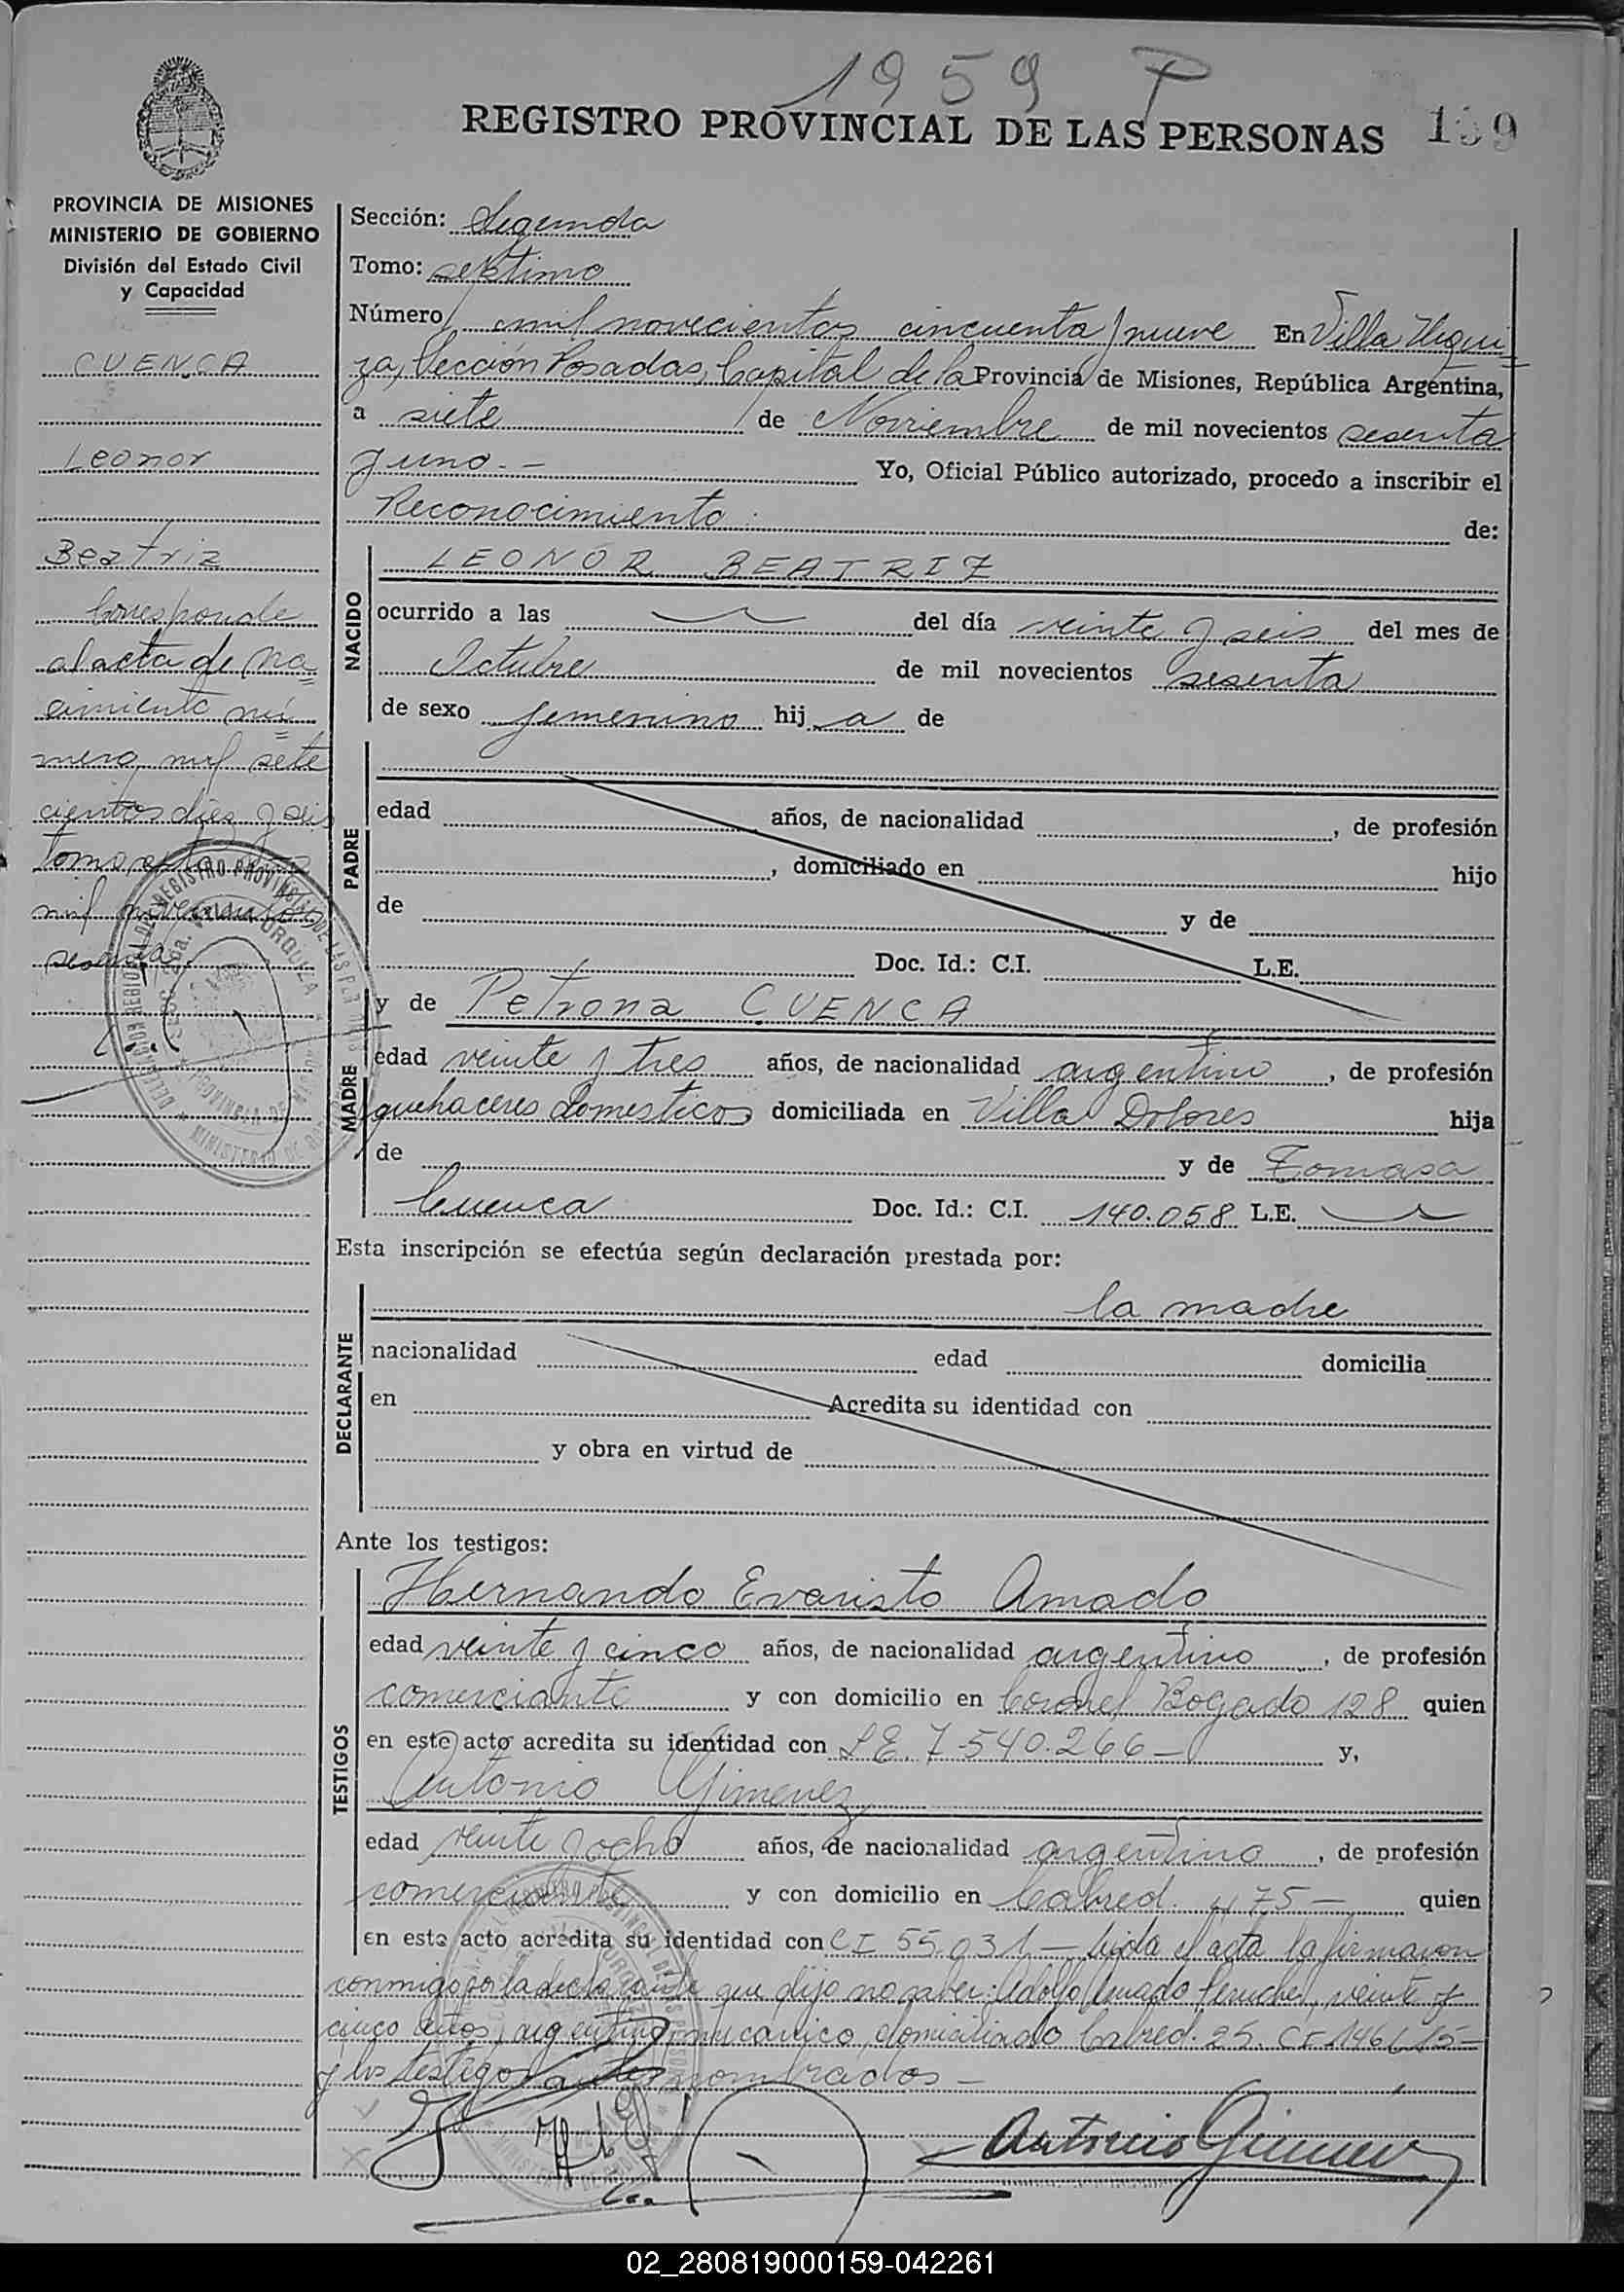 1959 P
REGISTRO PROVINCIAL DE LAS PERSONAS 159
PROVINCIA DE MISIONES
MINISTERIO DE GOBIERNO
División del Estado Civil
y Capacidad
CUENCA
Leonor
Beatriz
Corresponde
al acta de na=
cimiento nú=
mero mil sete
cientos diez y seis
tomo
mil novecientos
sesenta
Sección: Segunda
Tomo: septimo
Número mil novecientos cincuenta y nueve En Villa Urqui=
za, Sección Posadas, Capital de la Provincia de Misiones, República Argentina,
a siete de Noviembre de mil novecientos sesenta
y uno.- Yo, Oficial Público autorizado, procedo a inscribir el
Reconocimiento de:
NACIDO
LEONOR BEATRIZ
ocurrido a las del día veinte y seis del mes de
Octubre de mil novecientos sesenta
de sexo femenino hij a de
PADRE
edad años, de nacionalidad , de profesión
, domiciliado en hijo
de y de
Doc. Id.: C.I. L.E.
MADRE
y de Petrona CUENCA
edad veinte y tres años, de nacionalidad argentino, de profesión
quehaceres domesticos domiciliada en Villa Dolores hija
de y de Tomasa
Cuenca Doc. Id.: C.I. 140.058 L.E.
Esta inscripción se efectúa según declaración prestada por:
DECLARANTE
la madre
nacionalidad edad domicilia
en Acredita su identidad con
y obra en virtud de
Ante los testigos:
TESTIGOS
Hernando Evaristo Amado
edad veinte y cinco años, de nacionalidad argentino, de profesión
comerciante y con domicilio en Coronel Bogado 128 quien
en este acto acredita su identidad con L.E. 7.540.266 — y,
Antonio Gimenez
edad veinte y ocho años, de nacionalidad argentino, de profesión
comerciante y con domicilio en Cabred 475 — quien
en este acto acredita su identidad con CI 55.031 — Leida el acta la firmaron
conmigo por la declarante que dijo no saber: Adolfo Amado veinte y
cinco años, argentino, mecánico, domiciliado Cabred. 25. CI
y los testigos antes nombrados —
Antonio Gimenez
02_280819000159-042261